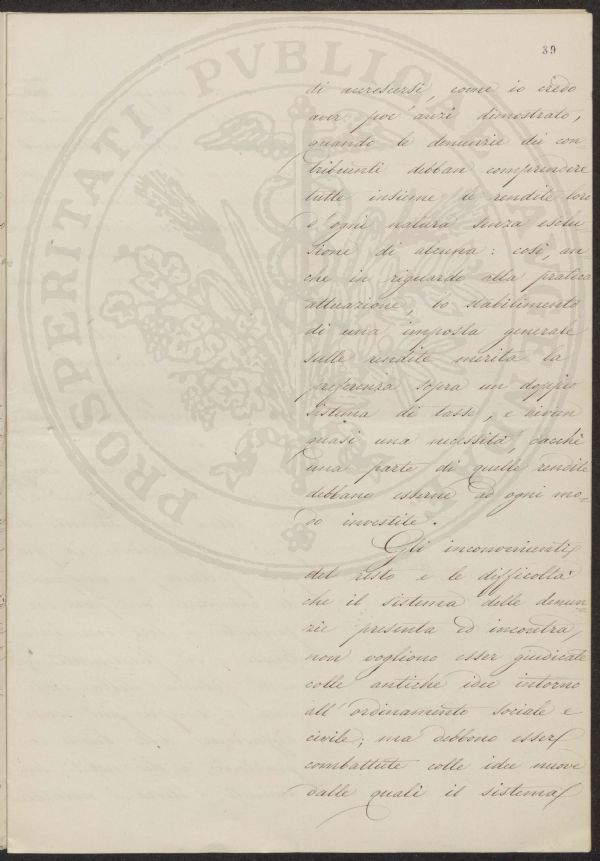 39
di accrescersi, come io credo
aver poc'anzi dimostrato,
quando le denunzie dei con
tribuenti debban comprendere
tutte insieme le rendite loro
d'ogni natura senza esclu
sione di alcuna: così, an=
che in riguardo alla pratica
attuazione, lo stabilimento
di una imposta generale
sulle rendite merita la
preferenza sopra un doppio
sistema di tasse, e divien
quasi una necessità, dacchè
una parte di quelle rendite
debbano esserne ad ogni mo=
do investite.
Gli inconvenienti
del resto e le difficoltà
che il sistema delle denun=
zie presenta ed incontra,
non vogliono esser giudicate
colle antiche idee intorno
all'ordinamento sociale e
civile; ma debbono esser
combattute colle idee nuove
dalle quali il sistema
PROSPERITATI PVBLICAE